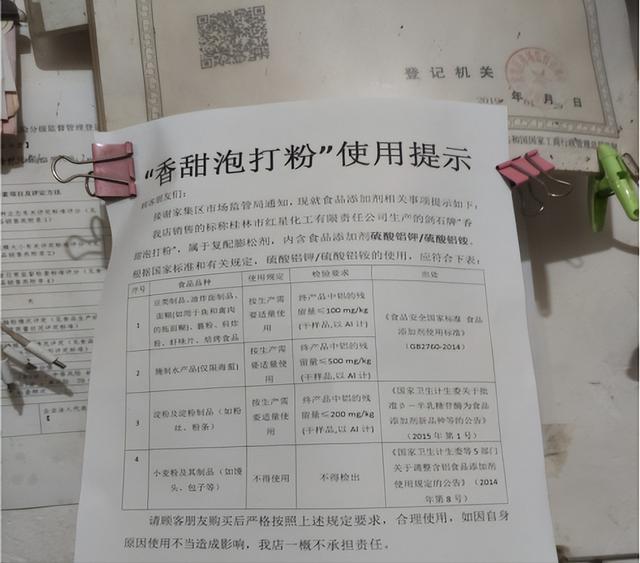 登记机关
年
"香甜泡打粉"使用提示
顾客朋友们：
接谢家集区市场监管局通知，现就食品添加剂相关事项提示如下：
我店销售的标称桂林市红星化工有限责任公司生产的剑石牌"香
甜泡打粉"，属于复配膨松剂，内含食品添加剂硫酸铝钾/硫酸铝铵。
根据国家标准和有关规定，硫酸铝钾/硫酸铝铵的使用，应符合下表：
序号 食品品种 使用规定 检验要求 出处
1
豆类制品、油炸面制品、
面糊(如用于鱼和禽肉
的拖面糊)、裹粉、煎炸
粉、虾味片、焙烤食品
按生产需
要适量使
用
终产品中铝的残
留量≤100 mg/kg
(干样品,以 Al 计)
《食品安全国家标准 食品
添加剂使用标准》
(GB2760-2014)
2
腌制水产品(仅限海蜇)
按生产需
要适量使
用
终产品中铝的残
留量≤500 mg/kg
(干样品,以 Al 计)
3
淀粉及淀粉制品（如粉
丝、粉条）
按生产需
要适量使
用
终产品中铝的残
留量≤200 mg/kg
(干样品,以 Al 计)
《国家卫生计生委关于批
准β－半乳糖苷酶为食品
添加剂新品种等的公告》
（2015 年第 1 号）
4
小麦粉及其制品（如馒
头、包子等）
不得使用
不得检出
《国家卫生计生委等 5 部门
关于调整含铝食品添加剂
使用规定的公告》（2014
年第 8 号）
请顾客朋友购买后严格按照上述规定要求，合理使用，如因自身
原因使用不当造成影响，我店一概不承担责任。